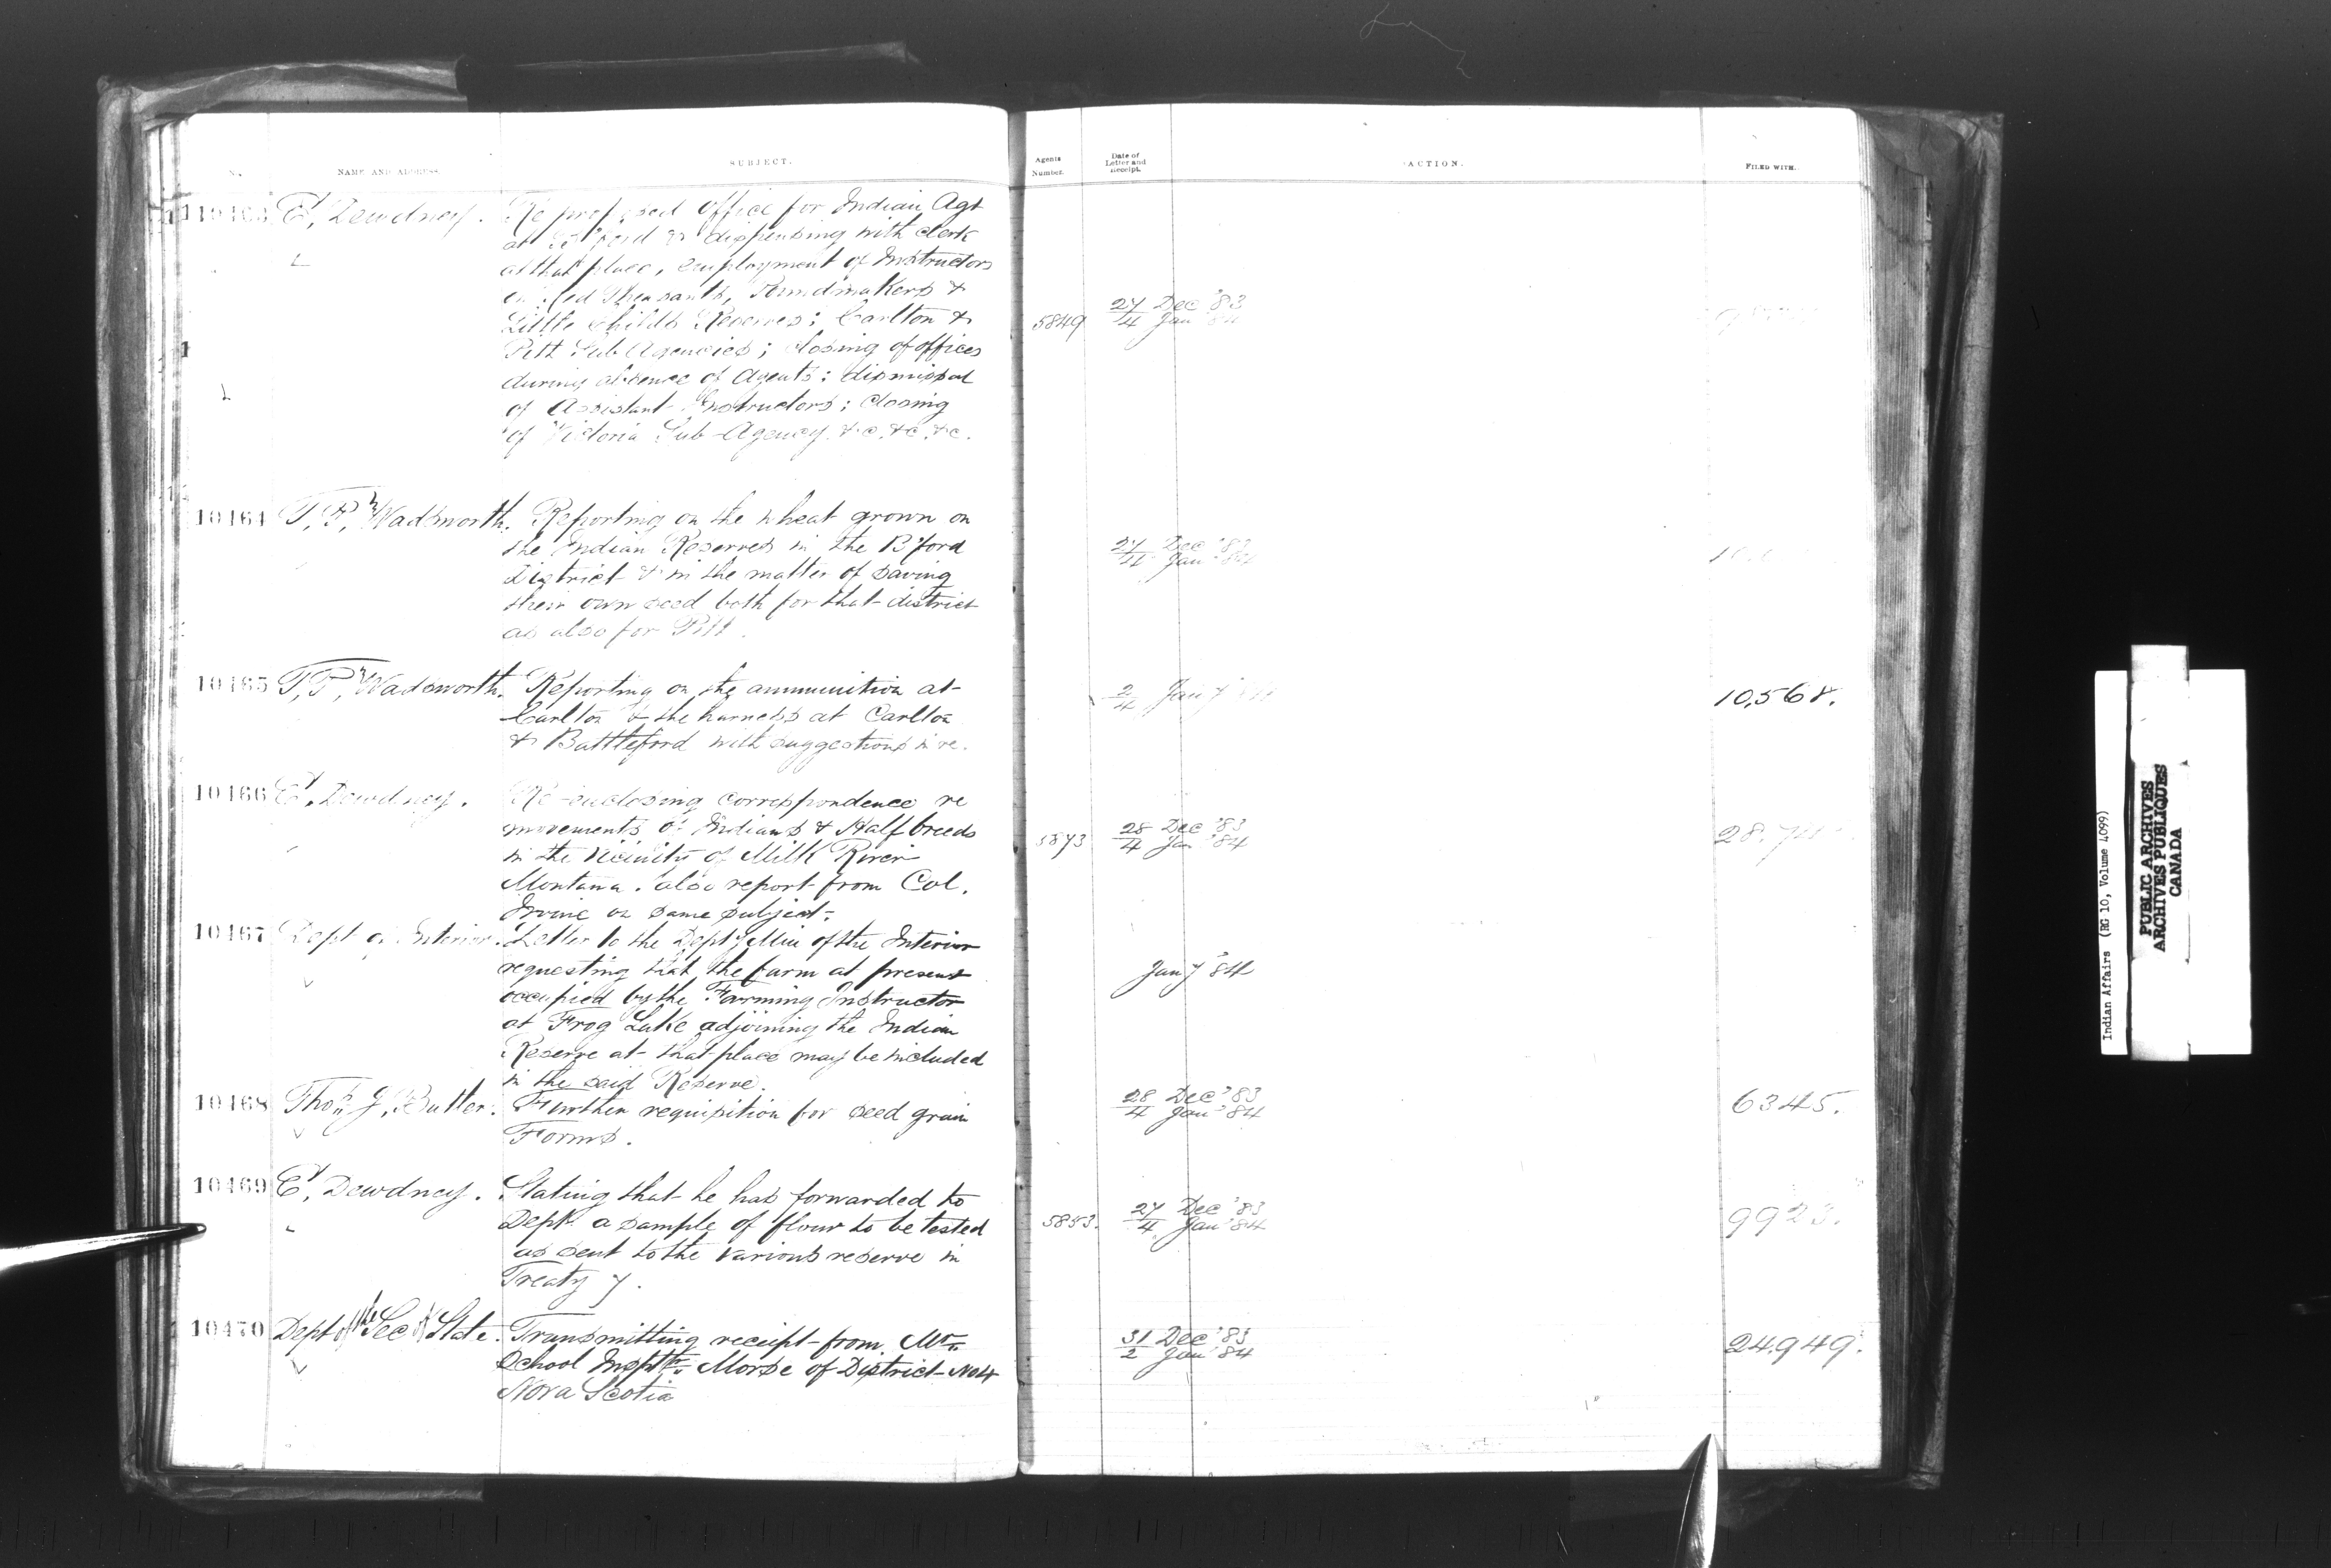 No. NAME AND ADDRESS. SUBJECT.
10463 E. Dewdney. Re proposed office for Indian Agt
at B'ford & dispensing with clerk
at that place, employment of Instructors
on Red Pheasants, Poundmakers &
Little Childs Reserves; Carlton &
Pitt Sub Agencies; closing of offices
during absence of Agents; dismissal
of Assistant Instructors; closing
of Victoria Sub-Agency &c. &c. &c.
10464 T. P. Wadsworth. Reporting on the wheat grown on
the Indian Reserves in the B'ford
District & in the matter of saving
their own seed both for that district
as also for Pitt.
10465 T. P. Wadsworth. Reporting on the ammunition at
Carlton & the harness at Carlton
& Battleford with suggestions in re.
10466 E. Dewdney. Re-enclosing correspondence re
movements of Indians & Half breeds
in the vicinity of Milk River
Montana. also report from Col.
Irvine on same subject.
10467 Dept of Interior. Letter to the Depty Min of the Interior
requesting that the farm at present
occupied by the Farming Instructor
at Frog Lake adjoining the Indian
Reserve at that place may be included
in the said Reserve.
10468 Thos J. Butler. Further requisition for seed grain
Forms.
10469 E. Dewdney. Stating that he has forwarded to
Dept. a sample of flour to be tested
as sent to the various reserve in
Treaty 7.
10470 Dept of the Sec of State. Transmitting receipt from Mr.
School Insptr. Morse of District No 4
Nova Scotia
Agents Number. Date of Letter and Receipt. ACTION. FILED WITH.
5849 27 Dec '83
4 Jan '84
27 Dec '83
4 Jan '84
2
4 Jany 10,568.
5873 28 Dec '83
4 Jan '84
Jany '84
28 Dec '83
4 Jan '84 6345.
5853. 27 Dec '83
4 Jan '84 9923.
31 Dec '83
2 Jan '84 24,949.
Indian Affairs (RG 10, Volume 4099)
PUBLIC ARCHIVES
ARCHIVES PUBLIQUES
CANADA